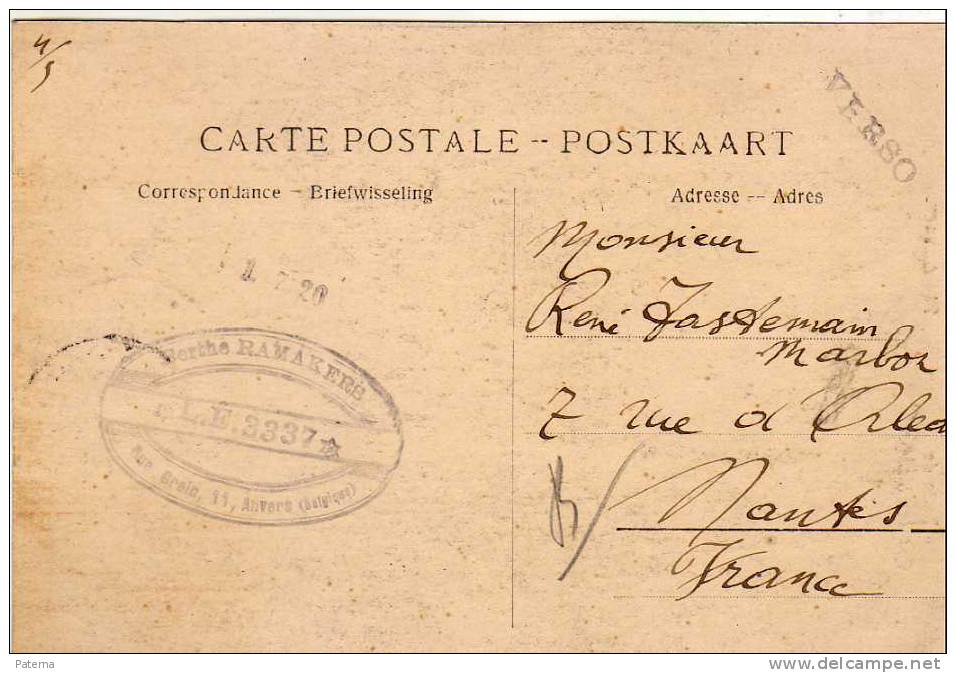 4/5
VERSO
CARTE POSTALE -- POSTKAART
Correspondance - Briefwisseling
Adresse -- Adres
1 7 20
Monsieur
René Tastemain
Marbor
7 rue d'Orlea
Nantes
France
Berthe RAMAKERS
L.E. 3337
Rue Breid, 11, Anvers (Belgique)
Paterna
http://www.delcampe.net